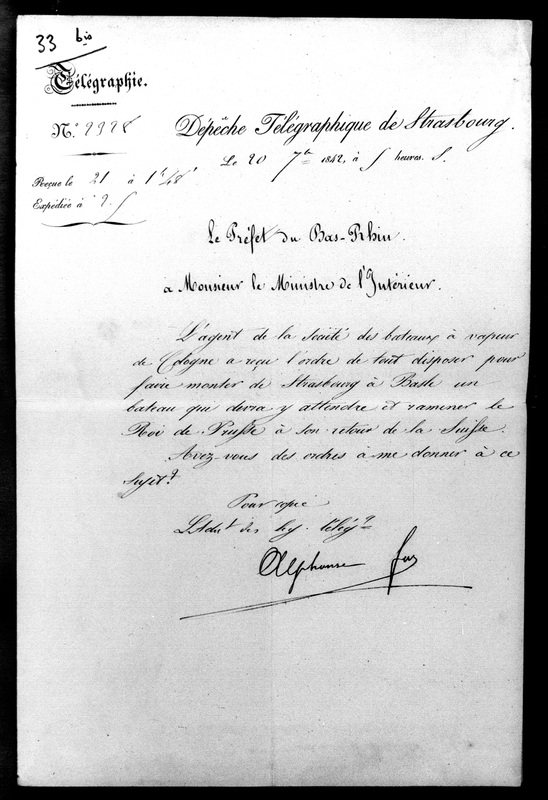 33 bis
Télégraphie.
N° 2928
Dépêche Télégraphique de Strasbourg.
Le 20 7bre 1842, à 5 heures S.
Perçue le 21 à 1h 48'
Expédiée à 2.
Le Préfet du Bas-Rhin
à Monsieur le Ministre de l'Intérieur.
L'agent de la société des bateaux à vapeur
de Cologne a reçu l'ordre de tout disposer pour
faire monter de Strasbourg à Basle un
bateau qui devra y attendre et ramener le
Roi de Prusse à son retour de la Suisse.
Avez-vous des ordres à me donner à ce
sujet?
Pour copie
des lig. télég.
Alphonse Foy